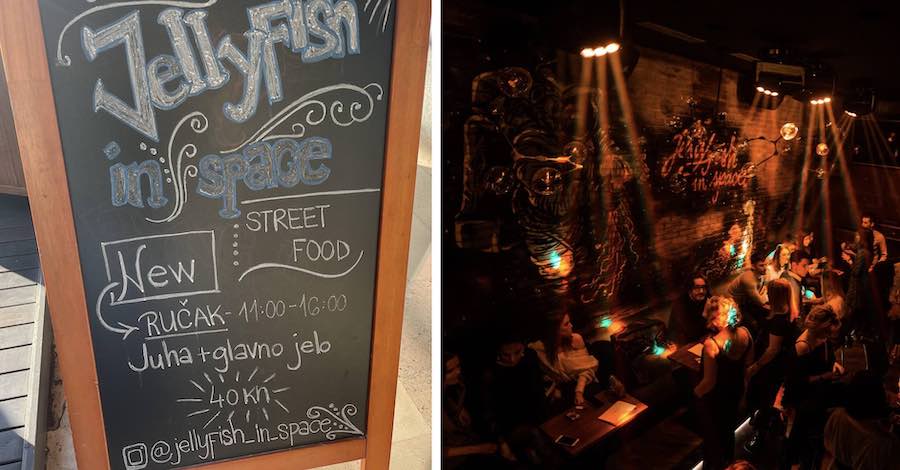 JellyFish
in space
STREET
FOOD
New
RUČAK - 11:00 - 16:00
Juha + glavno jelo
40 KN
@jellyfish_in_space
jellyfish
in space